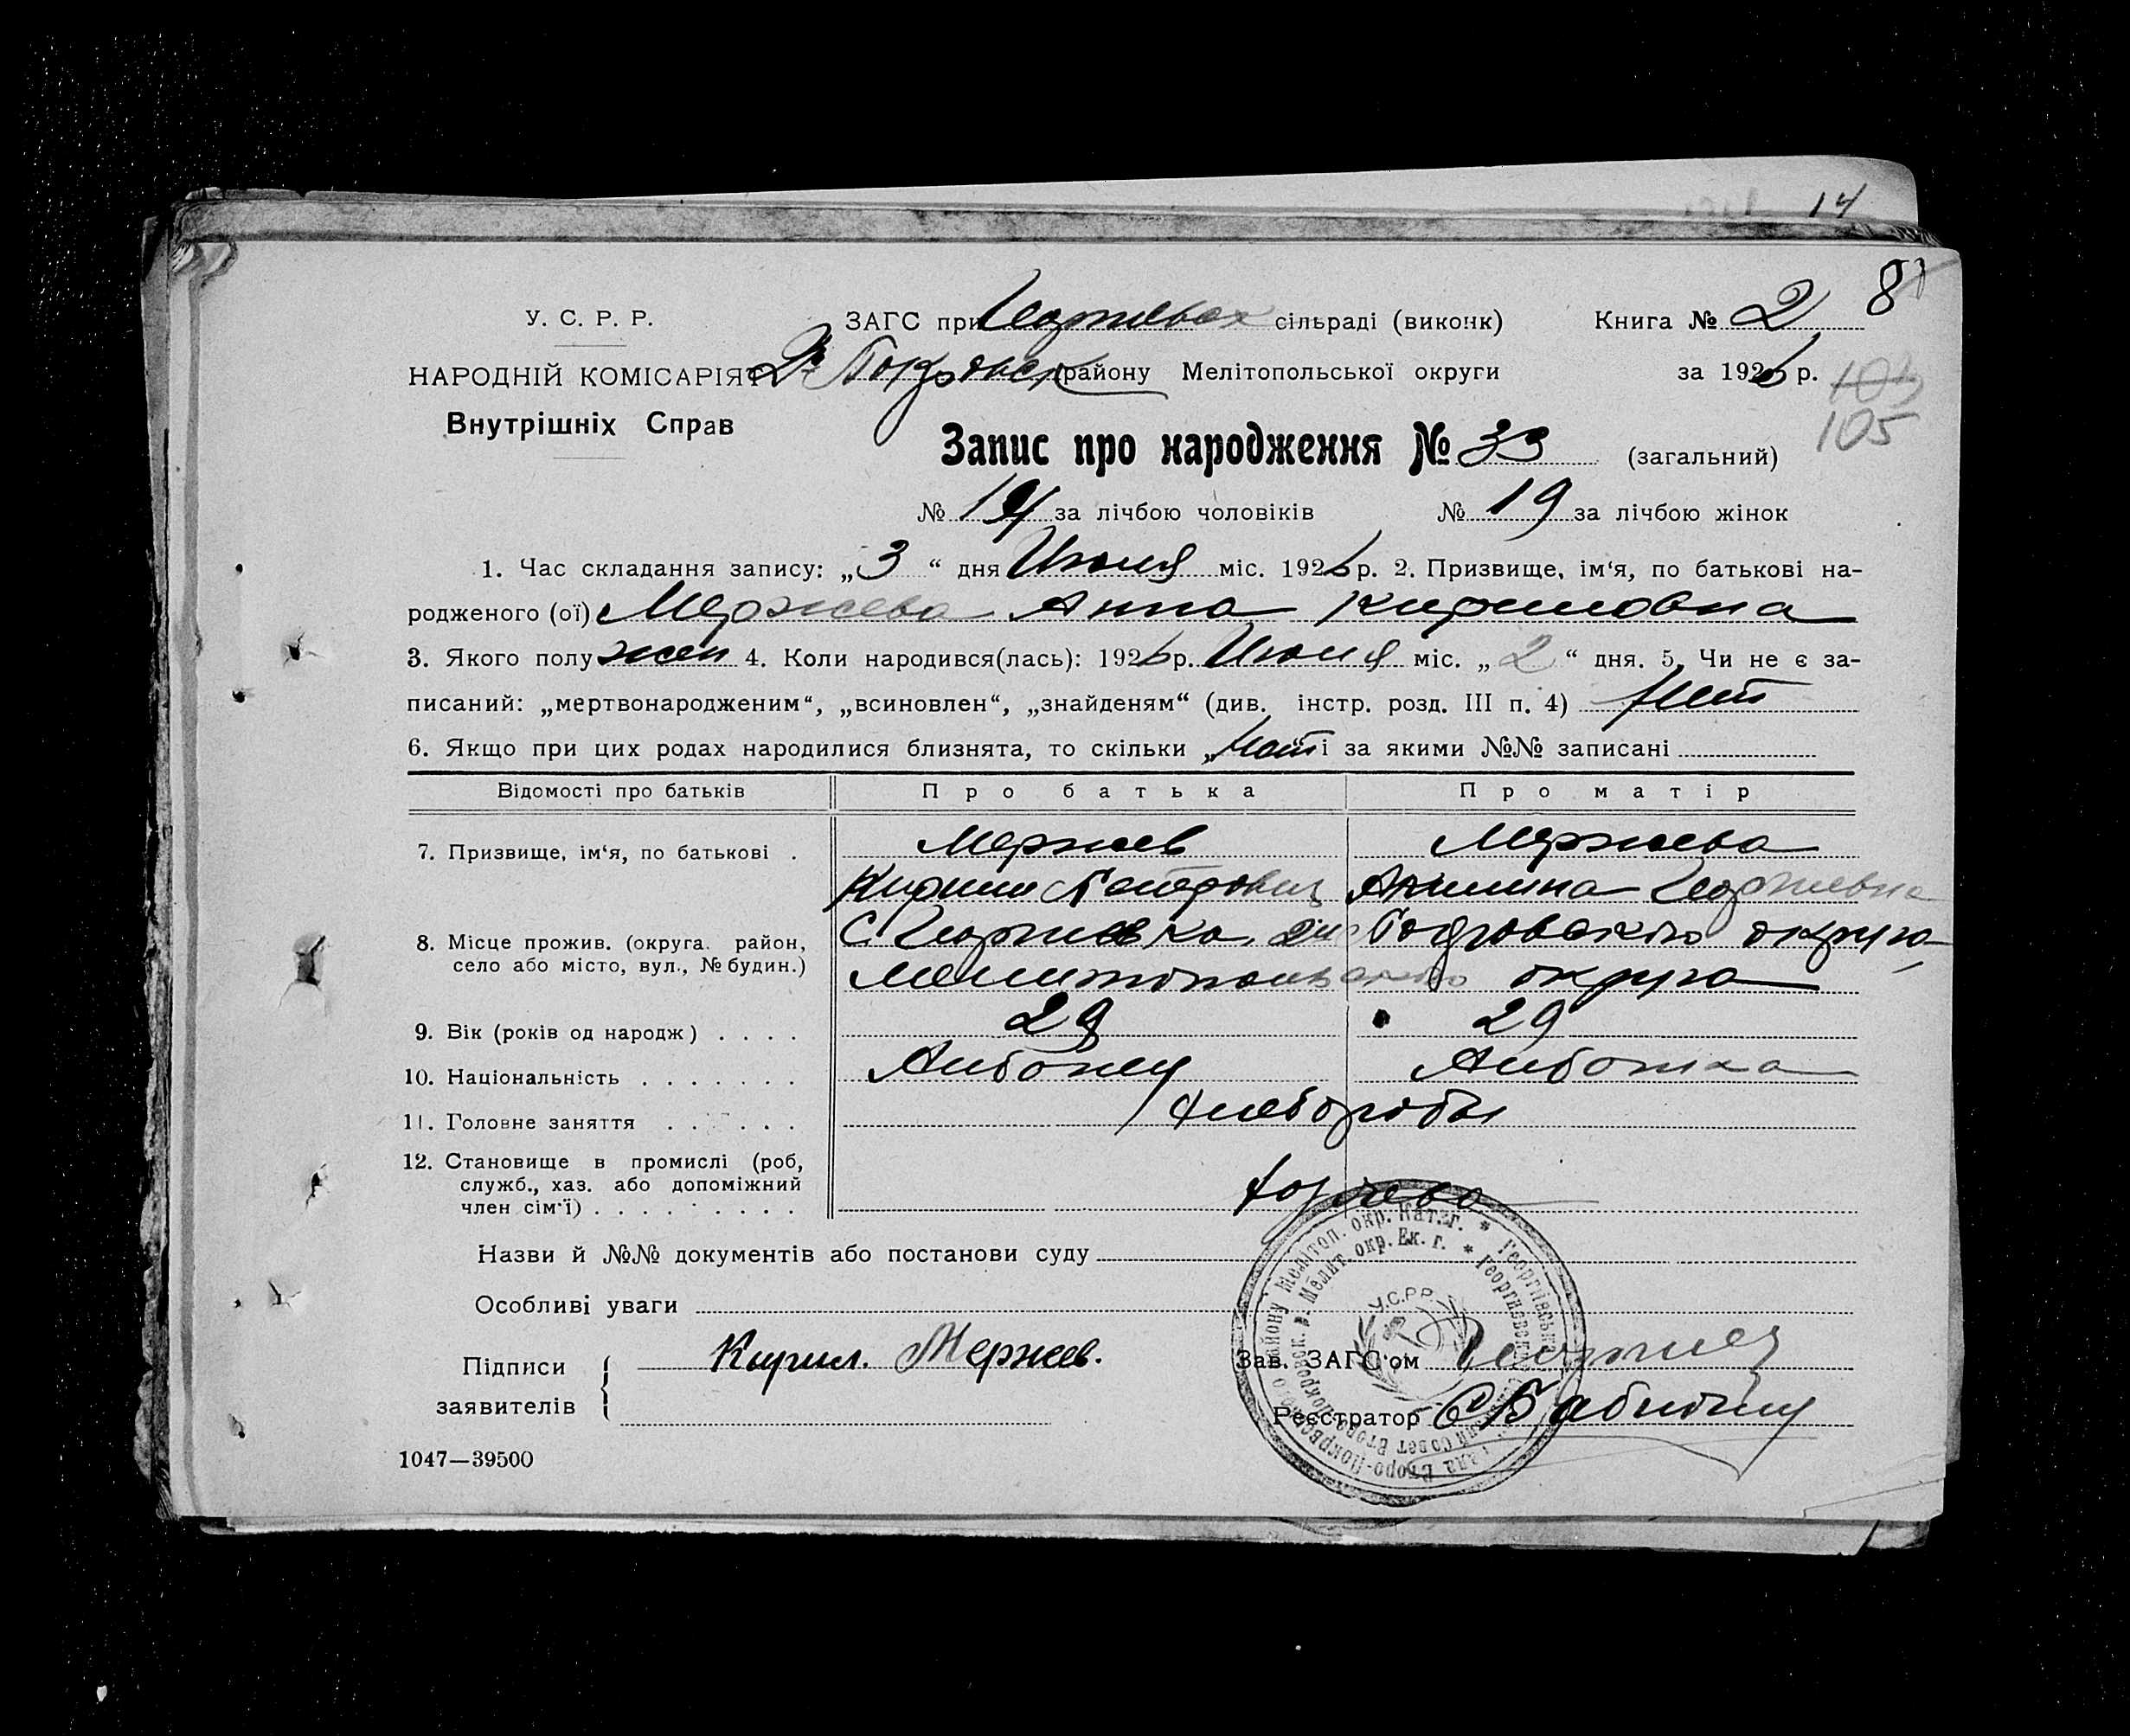 14
8
У. С. Р. Р.
ЗАГС при сільраді (виконк)
Книга № 2
НАРОДНІЙ КОМІСАРІЯТ
району Мелітопольської округи
за 1926 р.
103
105
Внутрішніх Справ
Запис про народження № 33 (загальний)
№ 14 за лічбою чоловіків № 19 за лічбою жінок
1. Час складання запису: „3“ дня Июля міс. 1926 р. 2. Призвище, ім‘я, по батькові на-
родженого (ої) Мержева Анна Кириловна
3. Якого полу жен 4. Коли народився(лась): 1926 р. Июля міс. „2“ дня. 5. Чи не є за-
писаний: „мертвонародженим“, „всиновлен“, „знайденям“ (див. інстр. розд. III п. 4) Нет
6. Якщо при цих родах народилися близнята, то скільки „Нет“ і за якими №№ записані
Відомості про батьків Про батька Про матір
7. Призвище, ім‘я, по батькові . Мержев Мержева
Кирилл Петрович Георгиевна
8. Місце прожив. (округа. район,
село або місто, вул., № будин.)
С Георгиевка 2й Покровского
Мелитопольского округа
9. Вік (років од народж) . . . . 29 29
10. Національність . . . . . . . Албонец Албонка
11. Головне заняття . . . . . . хлеборобы
12. Становище в промислі (роб,
служб., хаз. або допоміжний
член сім‘ї) . . . . . . . . .
Назви й №№ документів або постанови суду
Особливі уваги
Підписи
заявителів
Кирил. Мержев.
Зав. ЗАГС‘ом
Реєстратор
У.С.Р.Р.
1047—39500